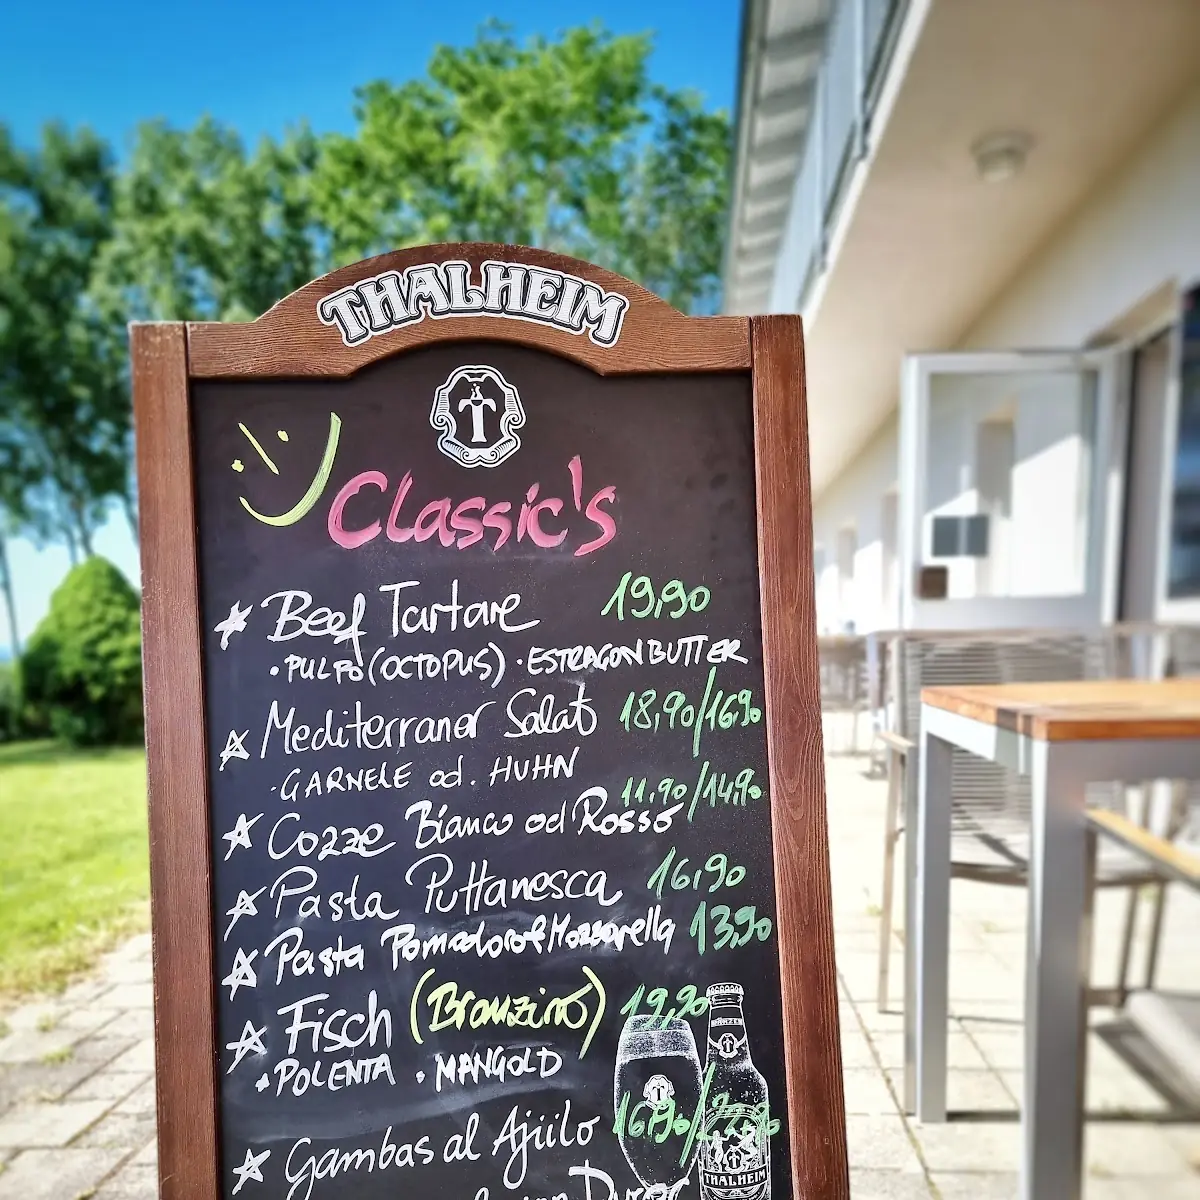 THALHEIM
T
Classic's
Beef Tartare 19,90
• PULPO (OCTOPUS) • ESTRAGONBUTTER
Mediterraner Salat 18,90/16,90
• GARNELE od. HUHN
11,90/14,90
Cozze Bianco od Rosso
Pasta Puttanesca 16,90
Pasta Pomodoro & Mozzarella 13,90
Fisch (Branzino) 19,90
• POLENTA • MANGOLD
Gambas al Ajiilo 16,90/
THALHEIM